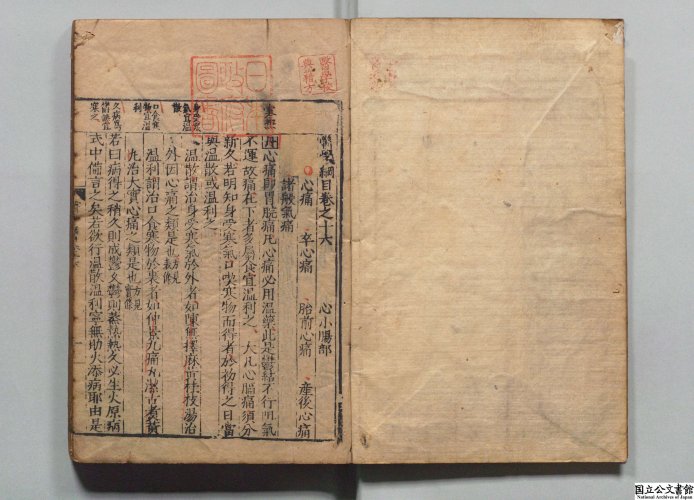 醫學綱目卷之十六
心小腸部
心痛 卒心痛 胎前心痛 産後心痛
諸般氣痛
丹心痛即胃脘痛凡心痛必用温藥此是鬱結不行阻氣
不運故痛在下者多屬食宜温利之 大凡心膈痛須分
新久若明知身受寒氣口喫寒物而得者於初得之日當
與温散或温利之
温散謂治身受寒氣於外者如陳無擇麻黄桂枝湯治
外因心痛之類是也
温利謂治口食寒物於内者如仲景九痛丸潔古煮黄
丸治大實心痛之類是也
若曰病得之稍久則成鬱久鬱則蒸熱熱久必生火原病
式中備言之矣若欲行温散温利寧無助火添病耶由是
身受寒氣宜温散
口食寒物宜温利
醫學校典籍方
国立公文書館
National Archives of Japan